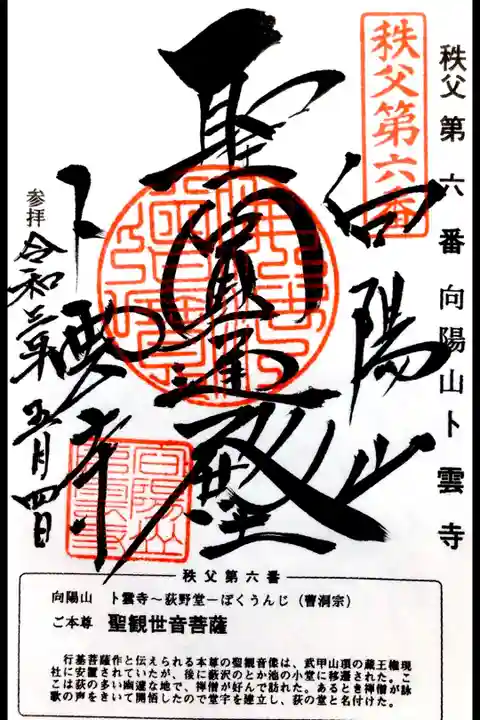 秩父第六番 向陽山卜雲寺
秩父第六番
向陽山
聖圓通殿
卜雲寺
参拝
令和三年五月四日
向陽山
秩父第六番
向陽山 卜雲寺～荻野堂ーぼくうんじ(曹洞宗)
ご本尊 聖観世音菩薩
行基菩薩作と伝えられる本尊の聖観音像は、武甲山頂の蔵王権現
社に安置されていたが、後に藪沢のとか池の小堂に移遷された。こ
こは荻の多い幽邃な地で、禅僧が好んで訪れた。あるとき禅僧が詠
歌の声をきいて開悟したので堂宇を建立し、荻の堂と名付けた。